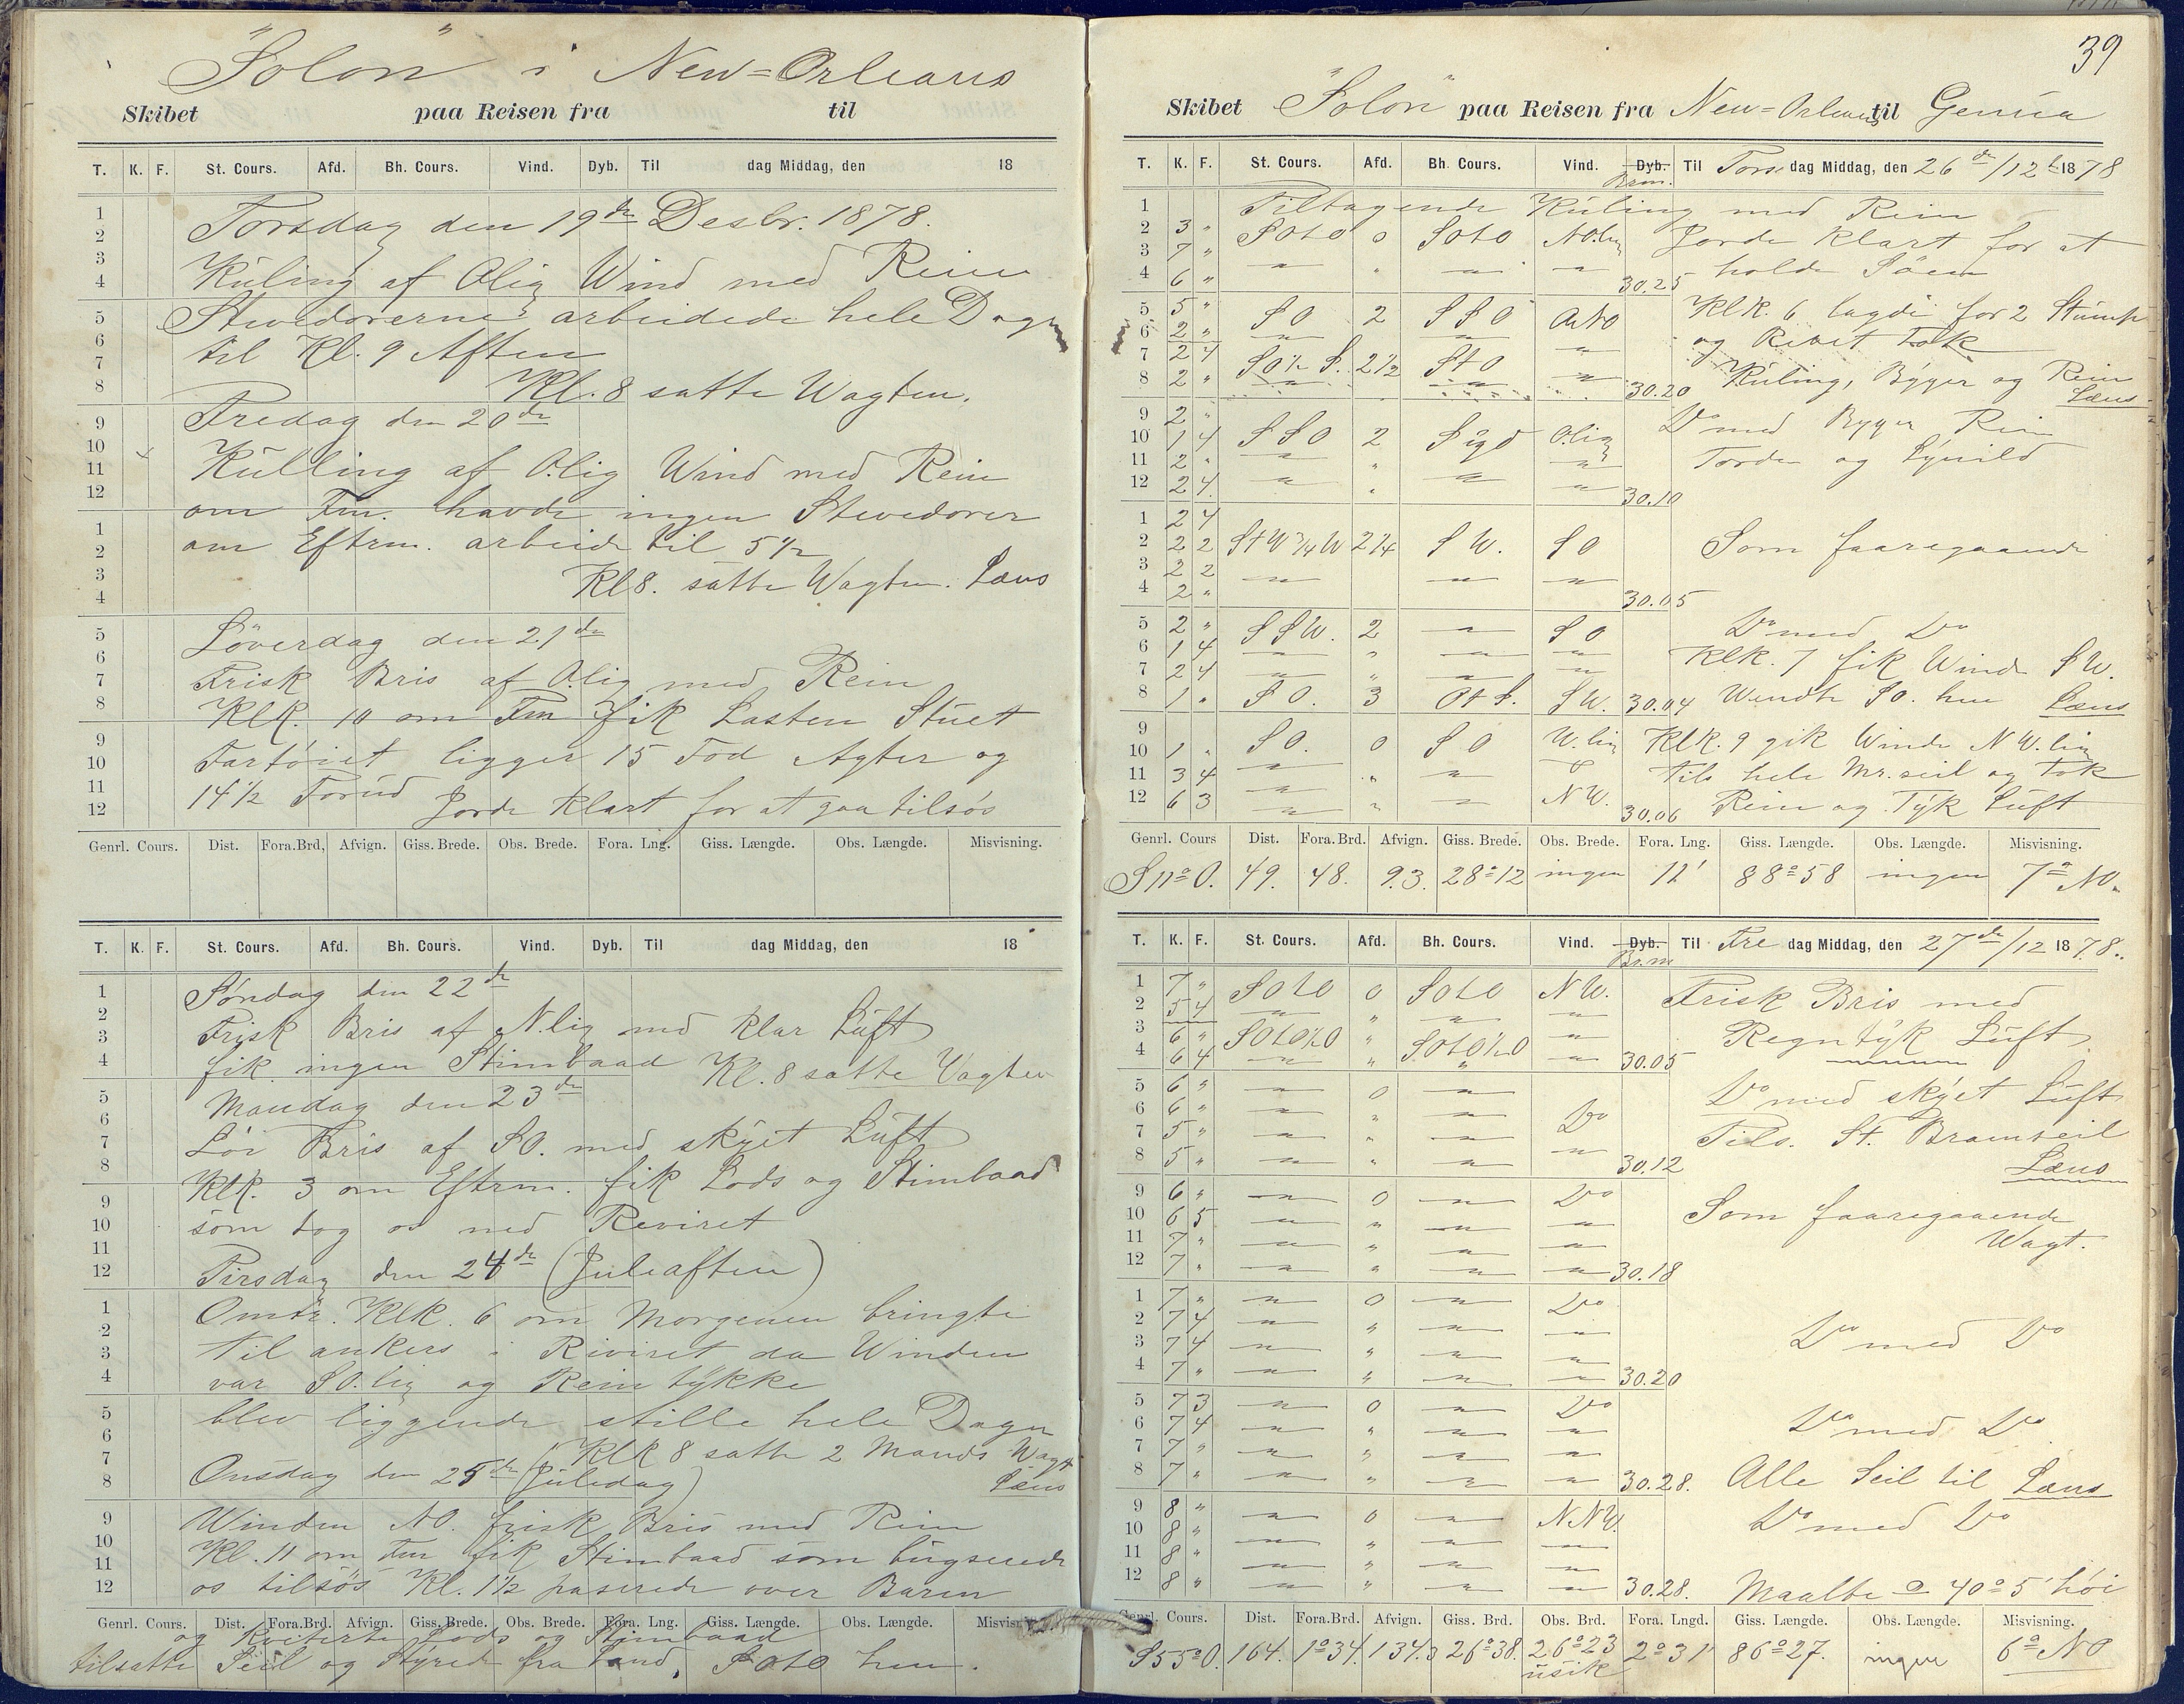 "Solon" i New=Orleans
Skibet paa Reisen fra til
T. K. F. St. Cours. Afd. Bh. Cours. Vind. Dyb. Til dag Middag, den 18
1 Torsdag den 19de Desbr. 1878.
2
3 Kuling af Olig Wind med Rein
4
5 Stevedorerne arbeidede hele Dagen
6 til Kl. 9 Aften
7
8 Kl. 8 satte Wagten.
9 Fredag den 20de
10
11 Kulling af O.lig Wind med Rein
12 om Fm. havde ingen Stevedorer
1 om Eftrm. arbeide til 5 1/2
2
3 Kl 8. satte Wagten. Læns
4
5 Löverdag den 21de
6
7 Frisk Bris af O.lig med Rein
8 Klk. 10 om Fm fik Lasten Stuet
9 Fartöiet ligger 15 Fod Agter og
10
11 14 1/2 Forud Jorde klart for at gaa tilsös
12
Genrl. Cours. Dist. Fora.Brd, Afvign. Giss. Brede. Obs. Brede. Fora. Lng. Giss. Længde. Obs. Længde. Misvisning.
T. K. F. St. Cours. Afd. Bh. Cours. Vind. Dyb. Til dag Middag, den 18
1 Söndag den 22de
2 Frisk Bris af N.lig med klar Luft
3
4 fik ingen Stimbaad Kl. 8 satte Vagten
5 Mandag den 23de
6
7 Lör Bris af SO. med skÿet Luft
8 Klk. 3 om Eftrm. fik Lods og Stimbaad
9
10 som tog os ned Reviret
11
12 Tirsdag den 24de (Juleaften)
1 Omtr. Klk. 6 om Morgenen bringte
2
3 til ankers i Reviret da Winden
4 var SO.lig og Rein tÿkke
5 blev liggende stille hele Dagen
6
7 Klk 8 satte 2 Mands Wagt
8 Onsdag den 25de (Juledag) Læns
9 Winden NO. frisk Bris med Rein
10
11 Kl. 11 om Fm fik Stimbaad som bugserede
12 os tilsös Kl. 1 1/2 paserede over Baren
Genrl. Cours. Dist. Fora.Brd. Afvign. Giss. Brede. Obs. Brede. Fora. Lng. Giss. Længde. Obs. Længde. Misvisning.
og Lods og Stimbaad
tilsatte Seil og Styrede fra Land. SOtO hen.
39
Skibet "Solon" paa Reisen fra New=Orleans til Genua
T. K. F. St. Cours. Afd. Bh. Cours. Vind. Dyb. Brm. Til Tors dag Middag, den 26de/12 b 1878
1 Tiltagende Kuling med Rein
2 3 " SOtO 0 SOtO NO.lig Jorde klart for at
3 7 "
4 6 " " " " " 30.25 holde Söen
5 5 " SO 2 SSO OtNO Klk. 6 lagde for 2 Stump
6 2 " " " " og Revet Fok
7 2 4 SO 1/2 S. 2 1/2 StO "
8 2 " " " " 30.20 Kuling, Bÿger og Rein Læns
9 2 " Do med Byger Rein
10 1 4 SSO 2 Syd O.lig
11 2 " " " " Torden og Lÿnild
12 2 4 " " " " 30.10
1 2 4
2 2 2 StW 3/4 W 2 1/4 SW. SO Som faaregaaende
3 2 2 " " "
4 2 " 30.05
5 2 " SSW. 2 " SO Do med Do
6 1 4 " " " " Klk. 7 fik Winde SW.
7 2 4 " " " "
8 1 " SO. 3 OtS. SW. 30.04 Wendte SO. hen Læns
9
10 1 " SO. 0 SO W.lig Klk. 9 gik Winde NW.lig
11 3 4 " " " " Tils hele Mr.seil og Fok
12 6 3 " " " NW. 30.06 Rein og Tÿk Luft
Genrl. Cours Dist. Fora.Brd. Afvign. Giss. Brede. Obs. Brede. Fora. Lng. Giss. Længde. Obs. Længde. Misvisning.
S 11° O. 49. 48. 9.3. 28°12 ingen 11' 88°58 ingen 7° NO.
T. K. F. St. Cours. Afd. Bh. Cours. Vind. Dyb. Brm Til Fre dag Middag, den 27de/12 1878.
1 7 " SOtO 0 SOtO NW. Frisk Bris med
2 5 4 " " " "
3 6 " SOtO 1/2 O " SOtO 1/2 O " Regntÿk Luft
4 6 4 " " " " 30.05
5 6 " " 0 " Do med skÿet Luft
6 6 " " " " Do
7 5 " " " " Tils. St. Bramseil
8 5 " " " " " 30.12 Læns
9 6 " " 0 " Do Som faaregaaende
10 6 5 " " " "
11 7 " " " " " Wagt.
12 7 " " " " " 30.18
1 7 " " 0 " Do
2 7 4 " " " " Do med Do
3 7 4 " " " "
4 7 " " " " " 30.20
5 7 3 " 0 " Do
6 7 4 " " " " Do med Do
7 7 " " " " "
8 7 " " " " " 30.28. Alle Seil til Læns
9 8 " " 0 " NNW. Do med Do
10 8 " " " " "
11 8 " " " " "
12 8 " " " " " 30.28. Maalte 40° 5' höi
Genrl. Cours. Dist. Fora.Brd. Afvign. Giss. Brd. Obs. Brd. Fora. Lngd. Giss. Længde. Obs. Længde. Misvisning.
S 55° O. 164. 1°34. 134.3 26°38. 26°23 usik 2°31' 86°27. ingen 6° NO